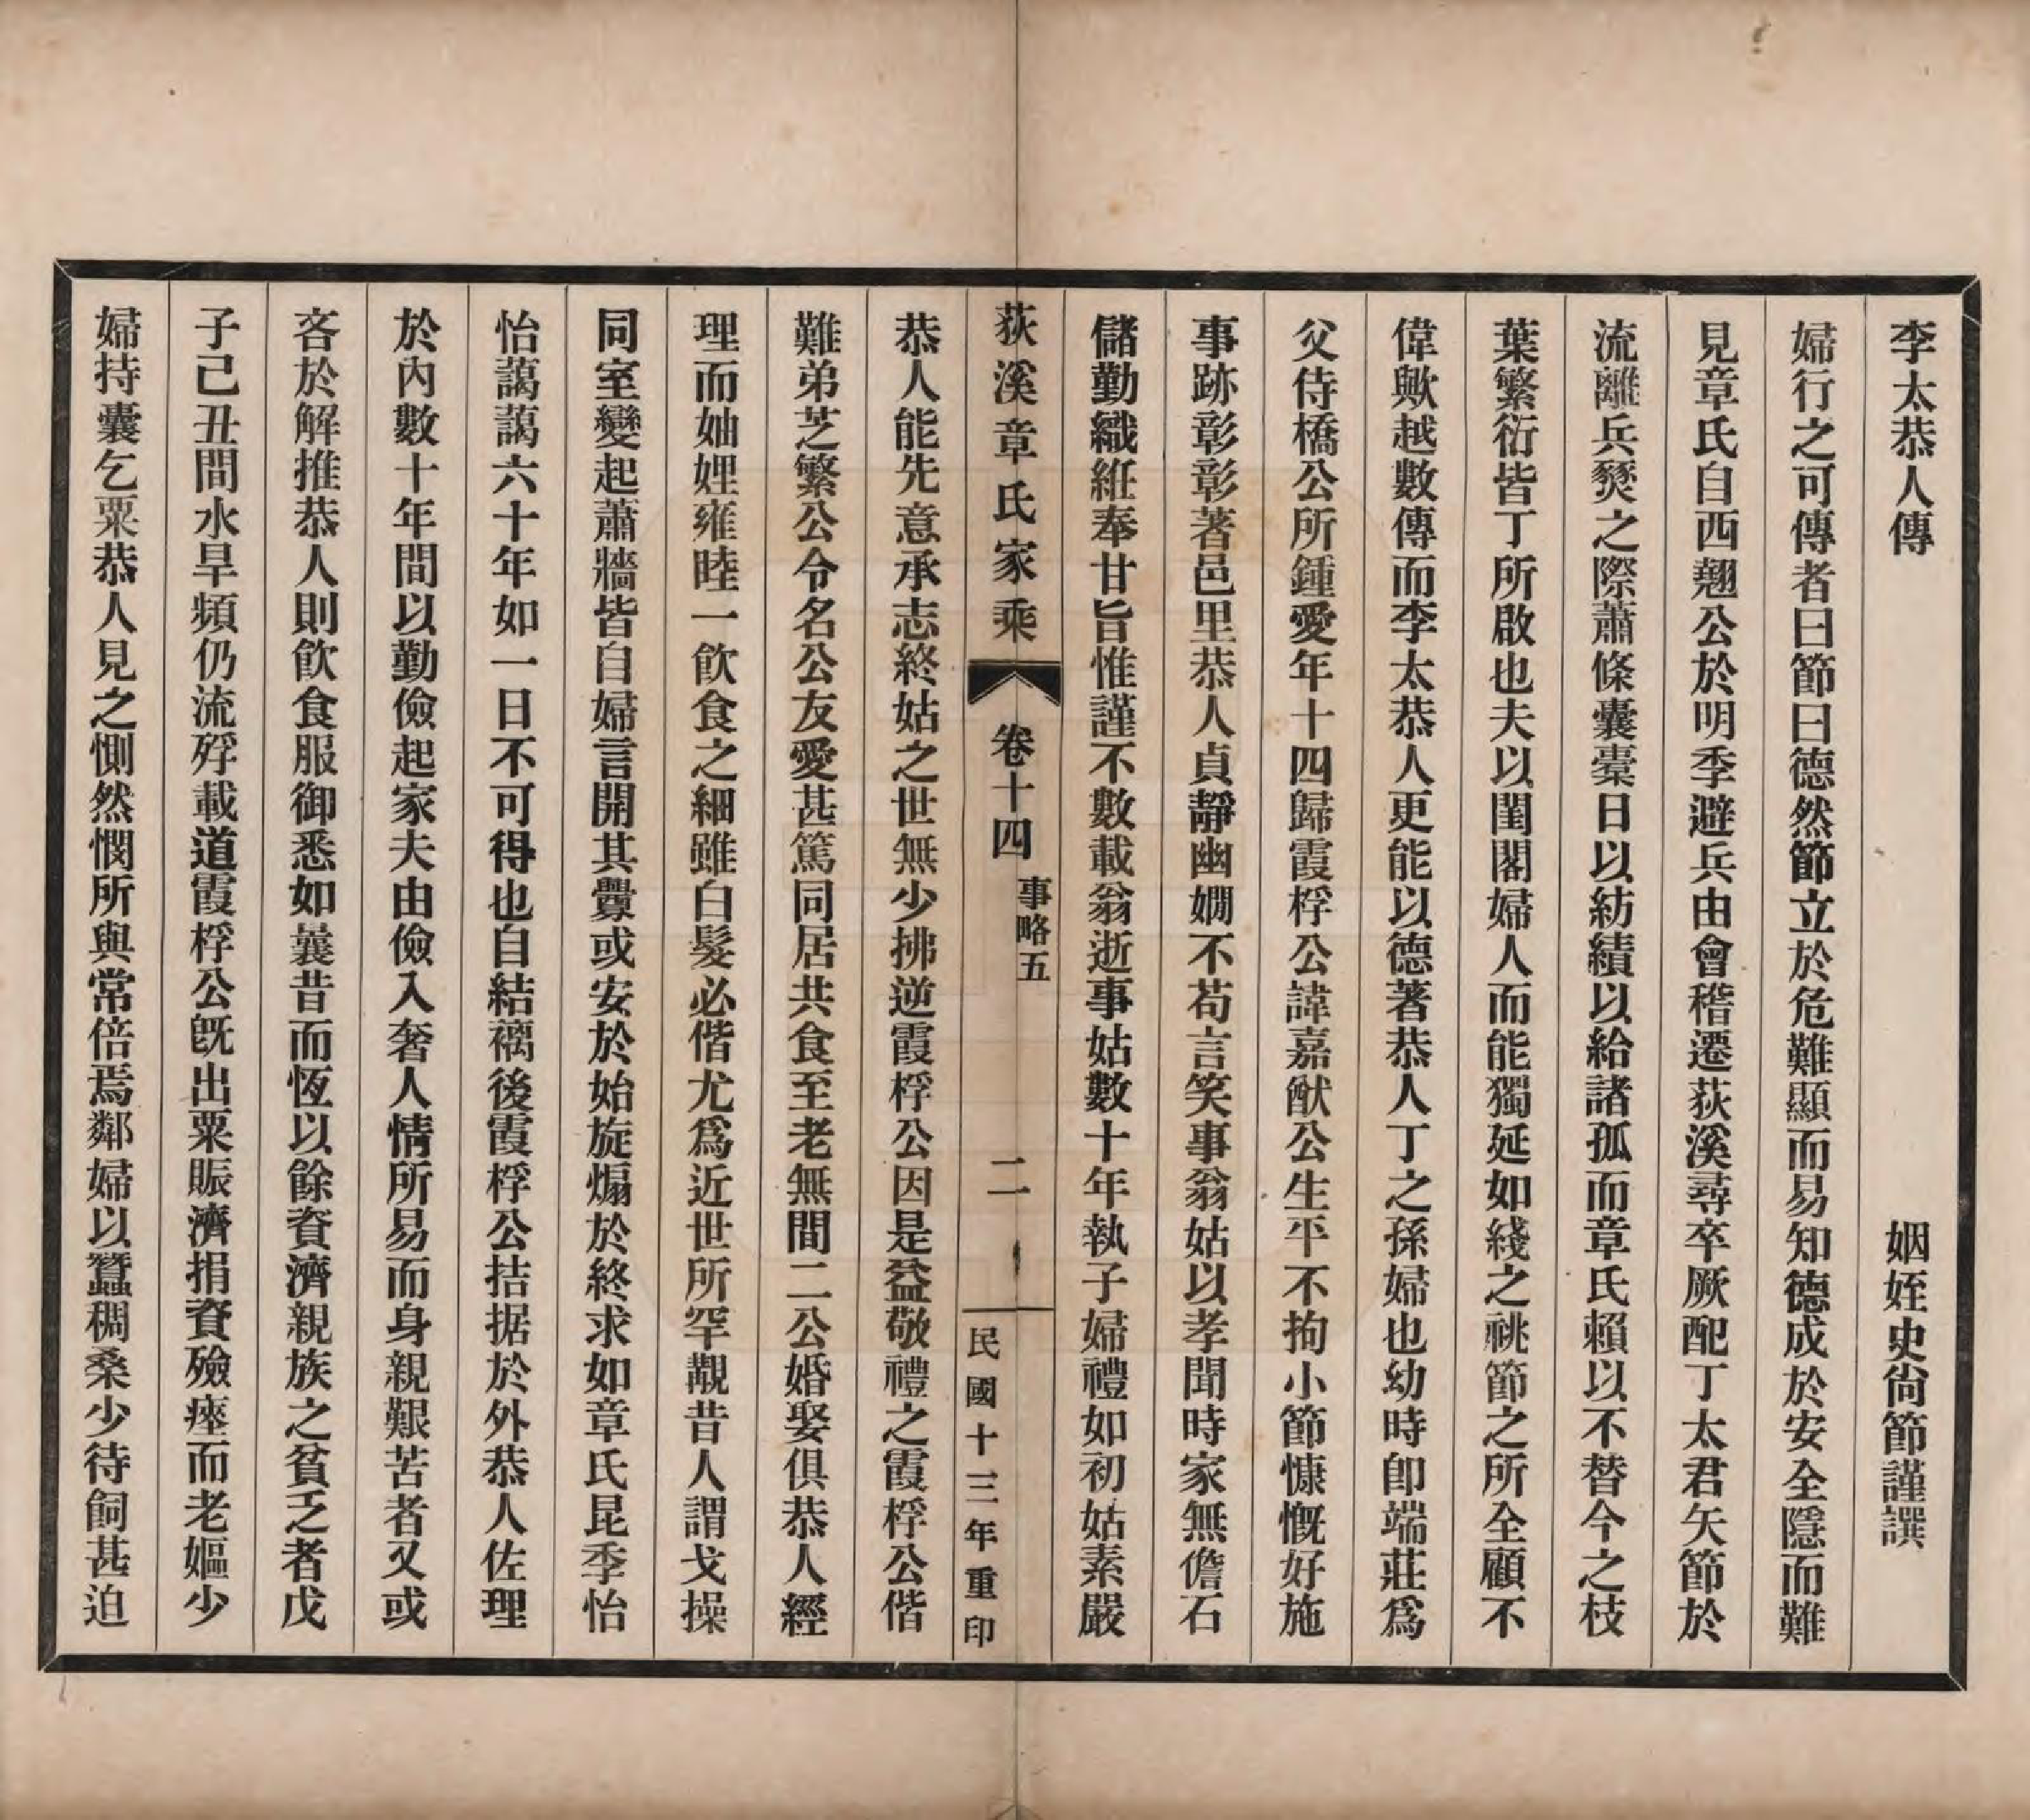 李太恭人傳　　　　　姻姪史尙節謹譔
婦行之可傳者曰節曰德然節立於危難顯而易知德成於安全隱而難
見章氏自西翹公於明季避兵由會稽遷荻溪尋卒厥配丁太君矢節於
流離兵燹之際蕭條囊橐日以紡績以給諸孤而章氏賴以不替今之枝
葉繁衍皆丁所啟也夫以閨閣婦人而能獨延如綫之祧節之所全顧不
偉歟越數傳而李太恭人更能以德著恭人丁之孫婦也幼時卽端莊爲
父侍橋公所鍾愛年十四歸霞桴公諱嘉猷公生平不拘小節慷慨好施
事跡彰彰著邑里恭人貞靜幽嫺不苟言笑事翁姑以孝聞時家無儋石
儲勤織絍奉甘旨惟謹不數載翁逝事姑數十年執子婦禮如初姑素嚴
荻溪章氏家乘　卷十四　事略五　二　民國十三年重印
恭人能先意承志終姑之世無少拂逆霞桴公因是益敬禮之霞桴公偕
難弟芝繁公令名公友愛甚篤同居共食至老無間二公婚娶俱恭人經
理而妯娌雍睦一飮食之細雖白髮必偕尤爲近世所罕覯昔人謂戈操
同室變起蕭牆皆自婦言開其釁或安於始旋煽於終求如章氏昆季怡
怡藹藹六十年如一日不可得也自結褵後霞桴公拮据於外恭人佐理
於內數十年間以勤儉起家夫由儉入奢人情所易而身親艱苦者又或
吝於解推恭人則飮食服御悉如曩昔而恆以餘資濟親族之貧乏者戊
子己丑間水旱頻仍流殍載道霞桴公旣出粟賑濟捐資殮瘞而老嫗少
婦持囊乞粟恭人見之惻然憫所與常倍焉鄰婦以蠶稠桑少待飼甚迫